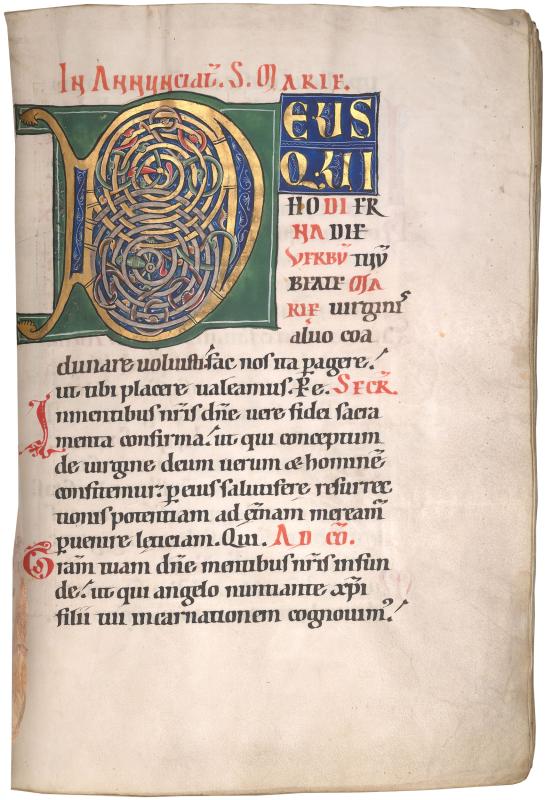 IN ANNUNCIAT̄. S. MARIE.
DEUS
QUI
HODIER
NA DIE
VERBŪ TUŪ
BEATE MA
RIE uirginis
aluo coa
dunare uoluisti: fac nos ita pagere.
ut tibi placere ualeamus. P̄e. SECR̄.
In mentibus nr̄is dn̄e uere fidei sacra
menta confirma. ut qui conceptum
de uirgine deum uerum & hominē
confitemur: p eius salutifere resurrec
tionis potentiam ad et̄nam mereamur
puenire leticiam. Qui. AD CŌ.
Gram̄ tuam dn̄e mentibus nr̄is infun
de. ut qui angelo nuntiante xp̄i
filii tui incarnationem cognouimus.